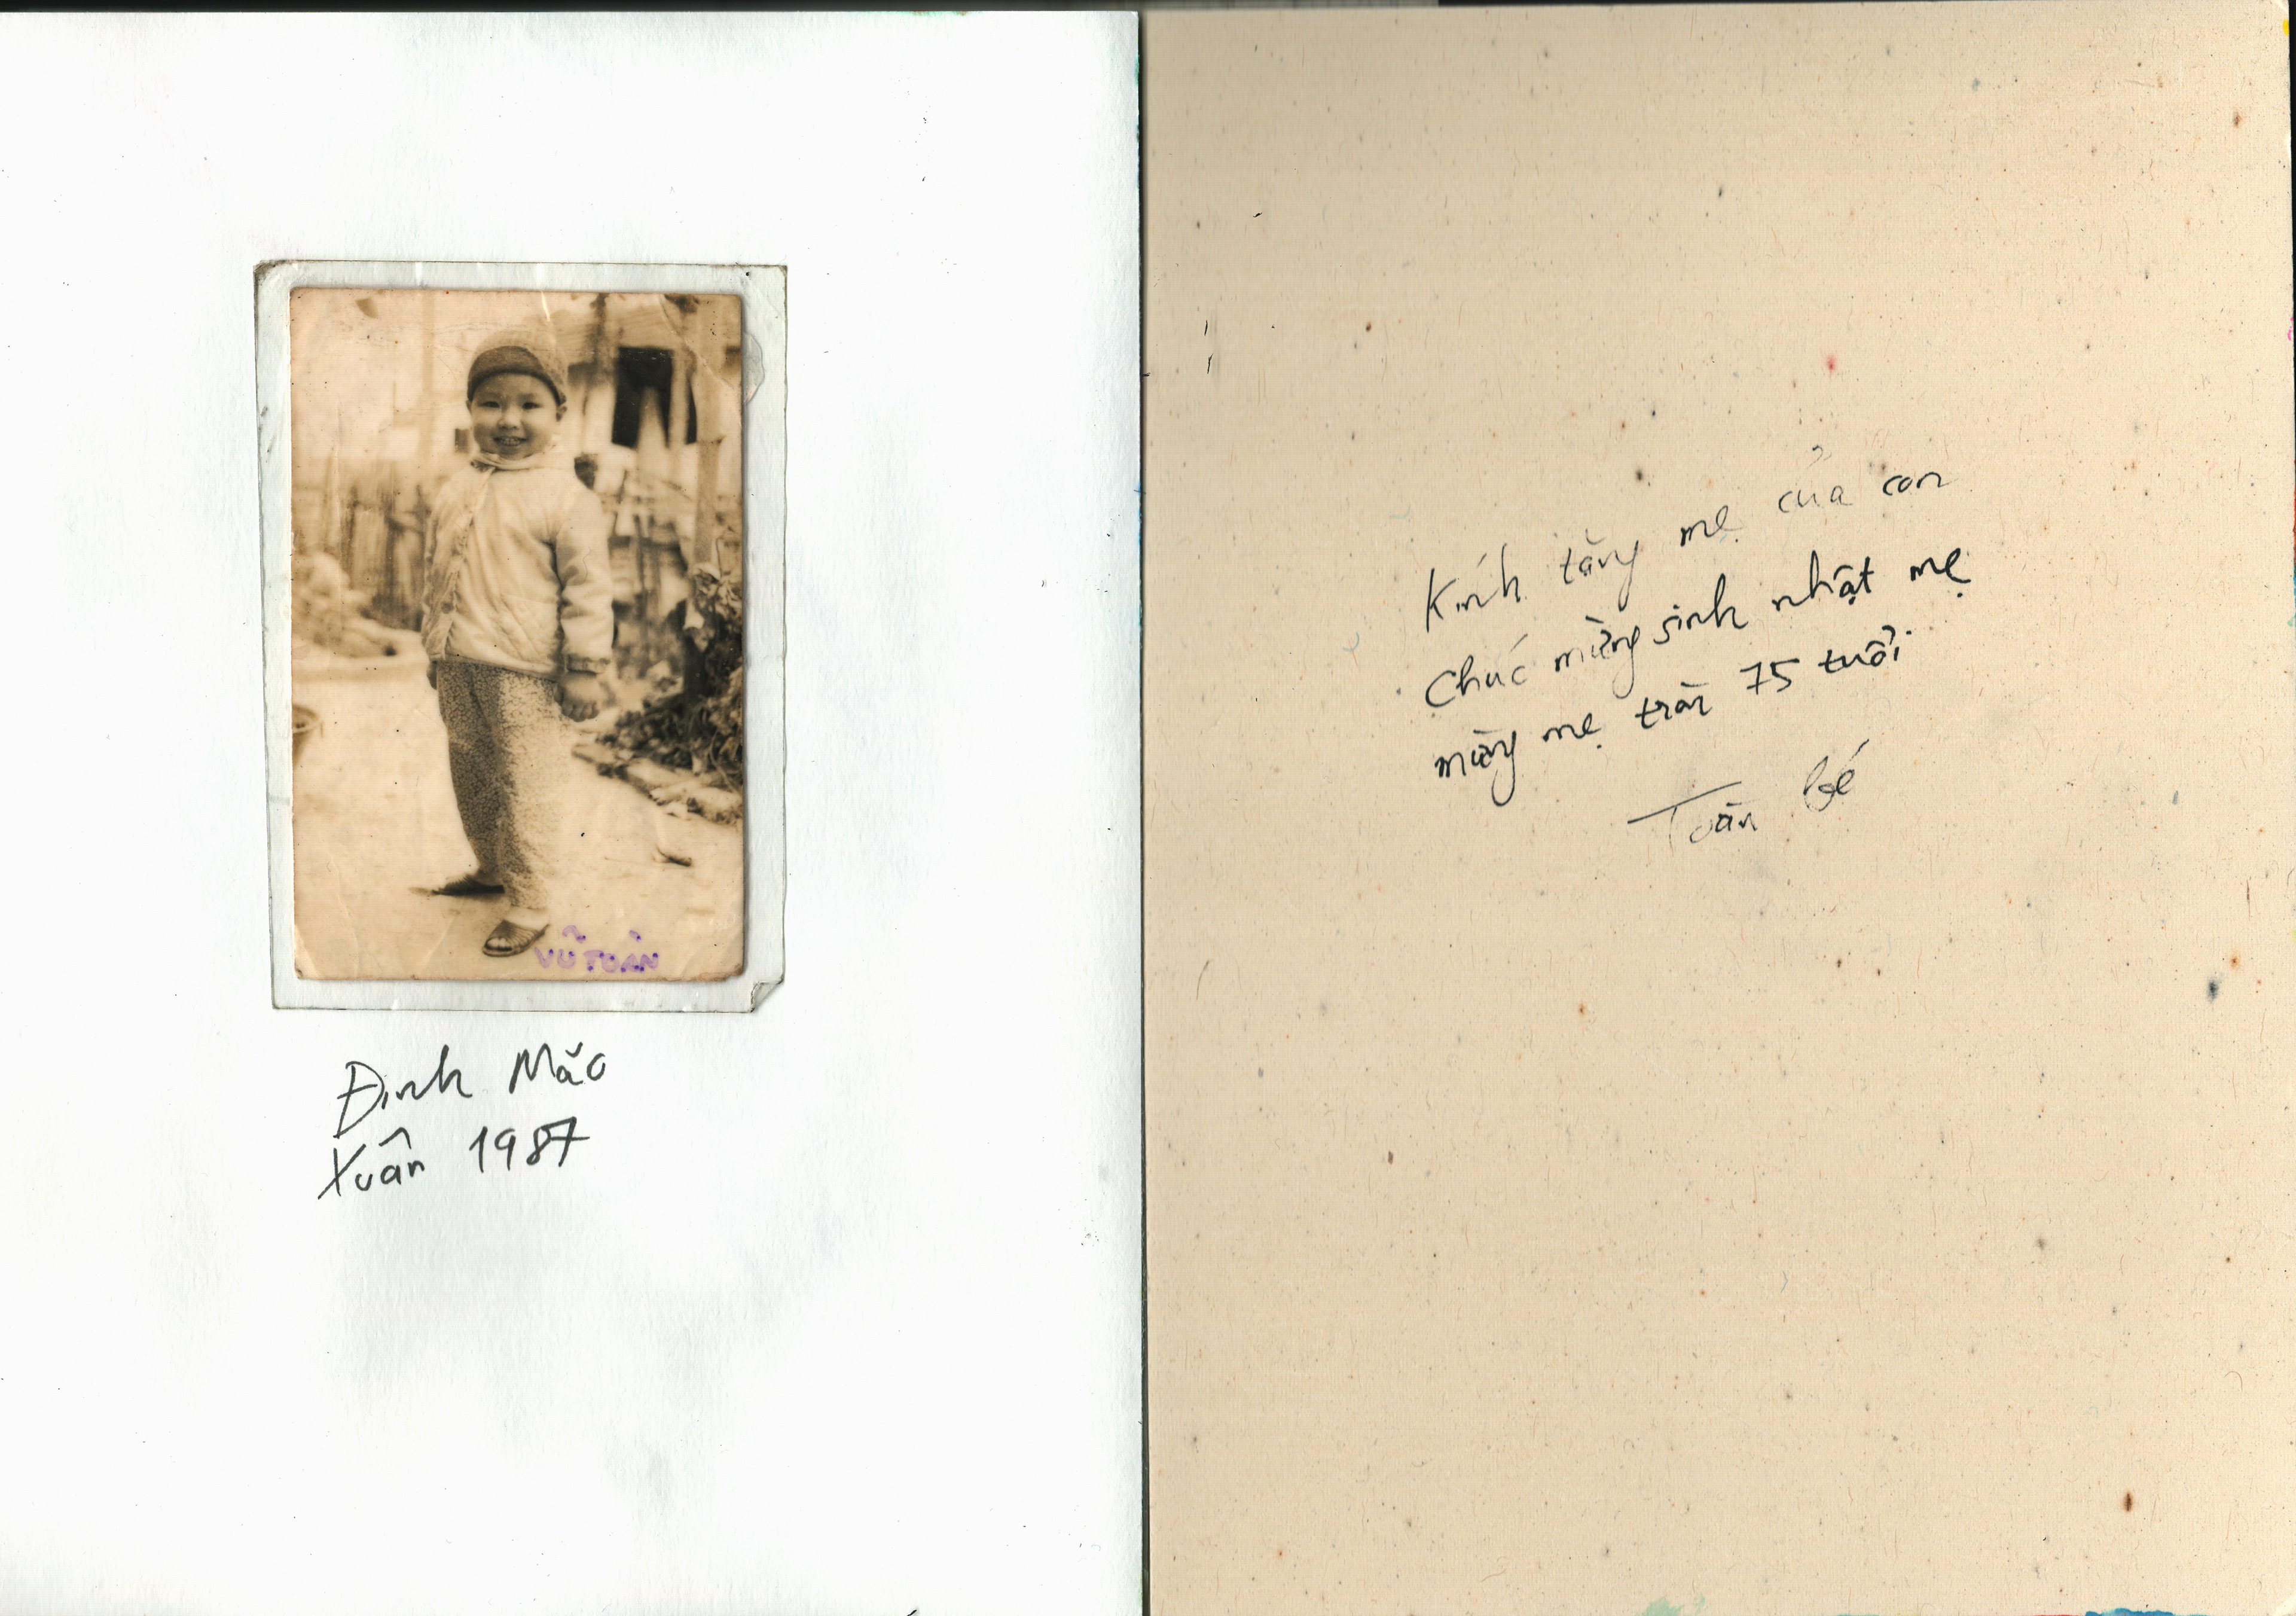 VŨ TOÀN
Đinh Mão
Xuân 1987
Kính tặng mẹ của con
Chúc mừng sinh nhật mẹ
mừng mẹ tròn 75 tuổi
Toàn bé